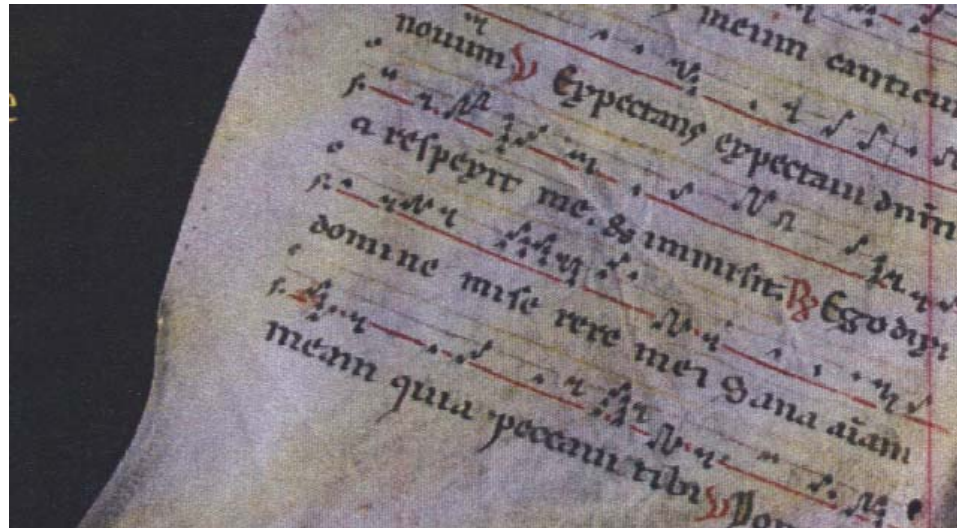 meum canticu
nouum ℣ Expectans expectaui dnm̄
a respexit me. & immisit: ℟ Ego dixi
domine mise rere mei Sana aīam
meam quia peccaui tibi ℣ Do
e